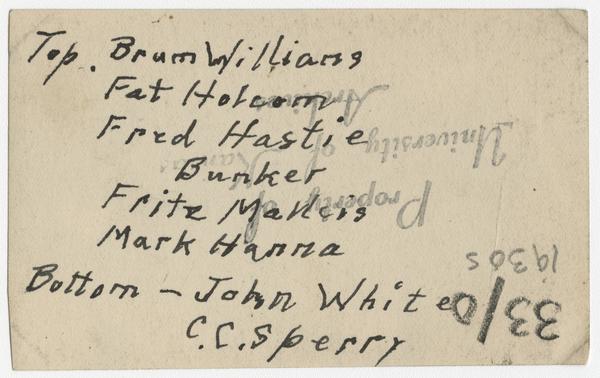 Top. Brum Williams
Fat Holcom
Fred Hastie
Bunker
Fritz
Mark Hanna
Bottom - John White
C.C. Sperry
Property of
University of Kansas
Archives
1930s
33/0